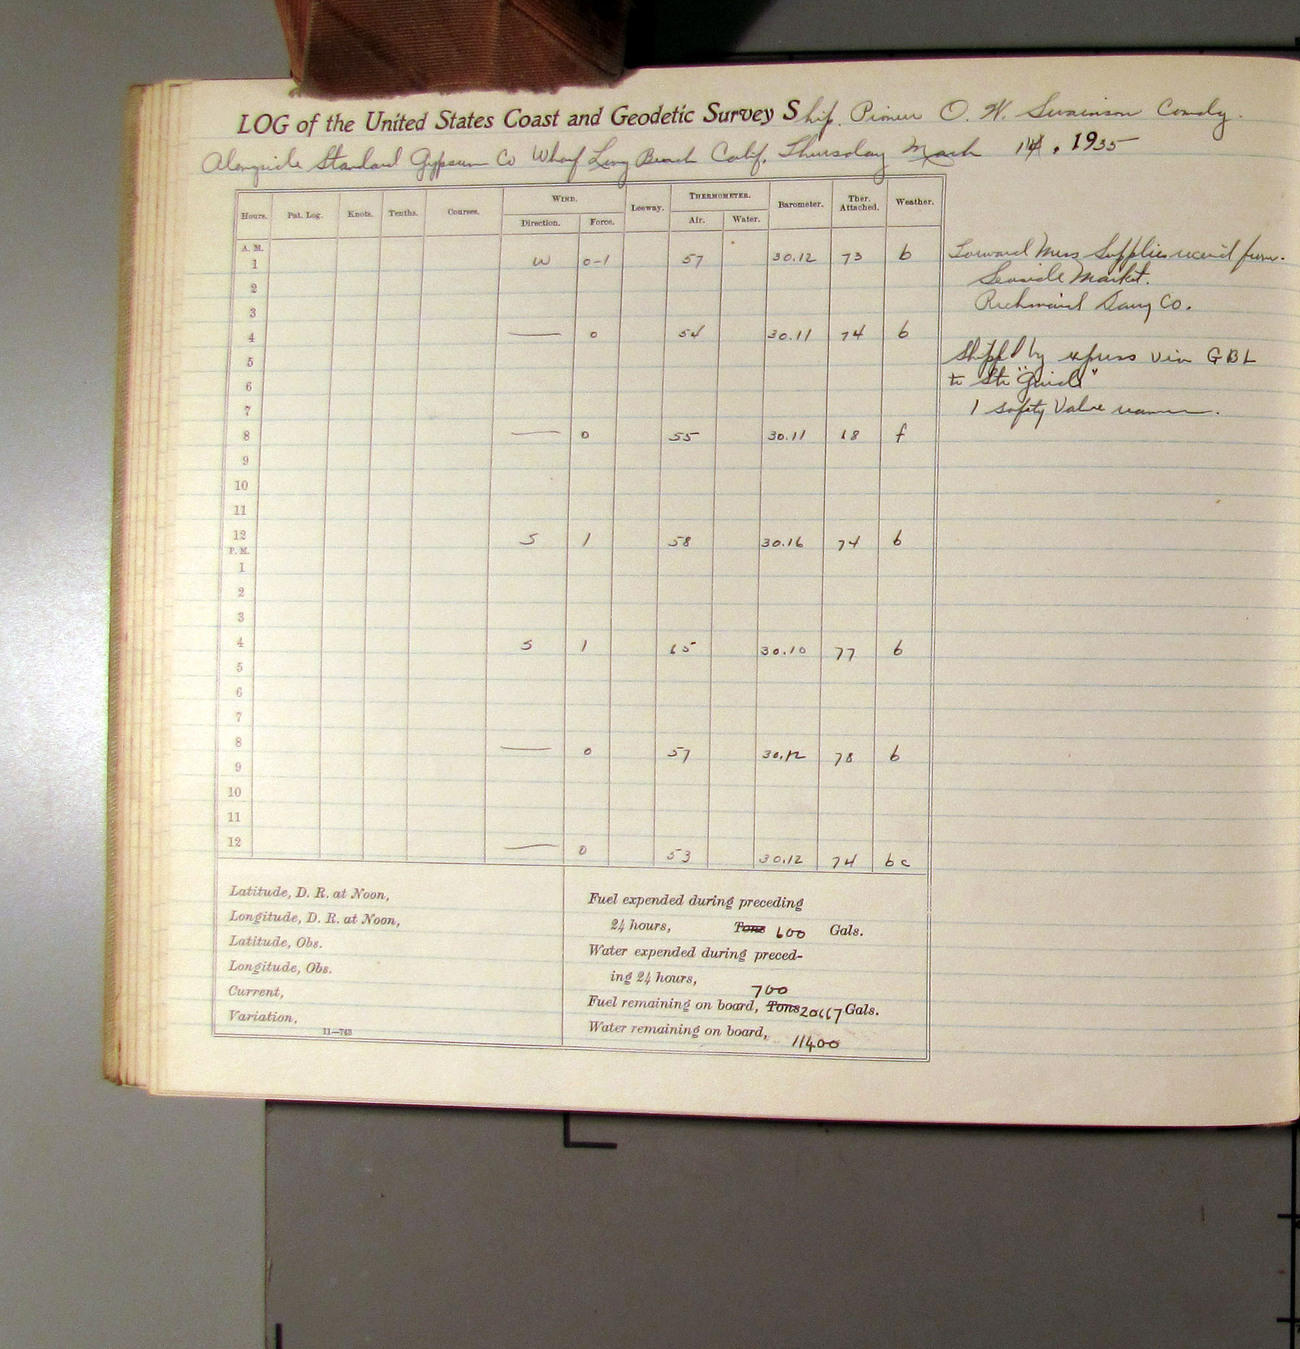 LOG of the United States Coast and Geodetic Survey Ship. Pioneer O. W. Swainson Comdg.
Alongside Standard Gypsum Co Wharf Long Beach Calif. Thursday March 14, 1935
WIND. THERMOMETER.
Hours. Pat. Log. Knots. Tenths. Courses. Direction. Force. Leeway. Air. Water. Barometer. Ther. Attached. Weather.
A. M.
1 W 0-1 57 30.12 73 b
2
3
4 — 0 54 30.11 74 b
5
6
7
8 — 0 55 30.11 68 f
9
10
11
12 S 1 58 30.16 74 b
P. M.
1
2
3
4 S 1 65 30.10 77 b
5
6
7
8 — 0 57 30.12 78 b
9
10
11
12 — 0 53 30.12 74 bc
Forward Mess Supplies received from.
Seaside Market.
Dairy Co.
Shipped by express via GBL
to Str "Guide"
1 safety Valve
Latitude, D. R. at Noon,
Longitude, D. R. at Noon,
Latitude, Obs.
Longitude, Obs.
Current,
Variation,
11—763
Fuel expended during preceding
24 hours, Tons 600 Gals.
Water expended during preced-
ing 24 hours, 700
Fuel remaining on board, Tons 20667 Gals.
Water remaining on board, 11400